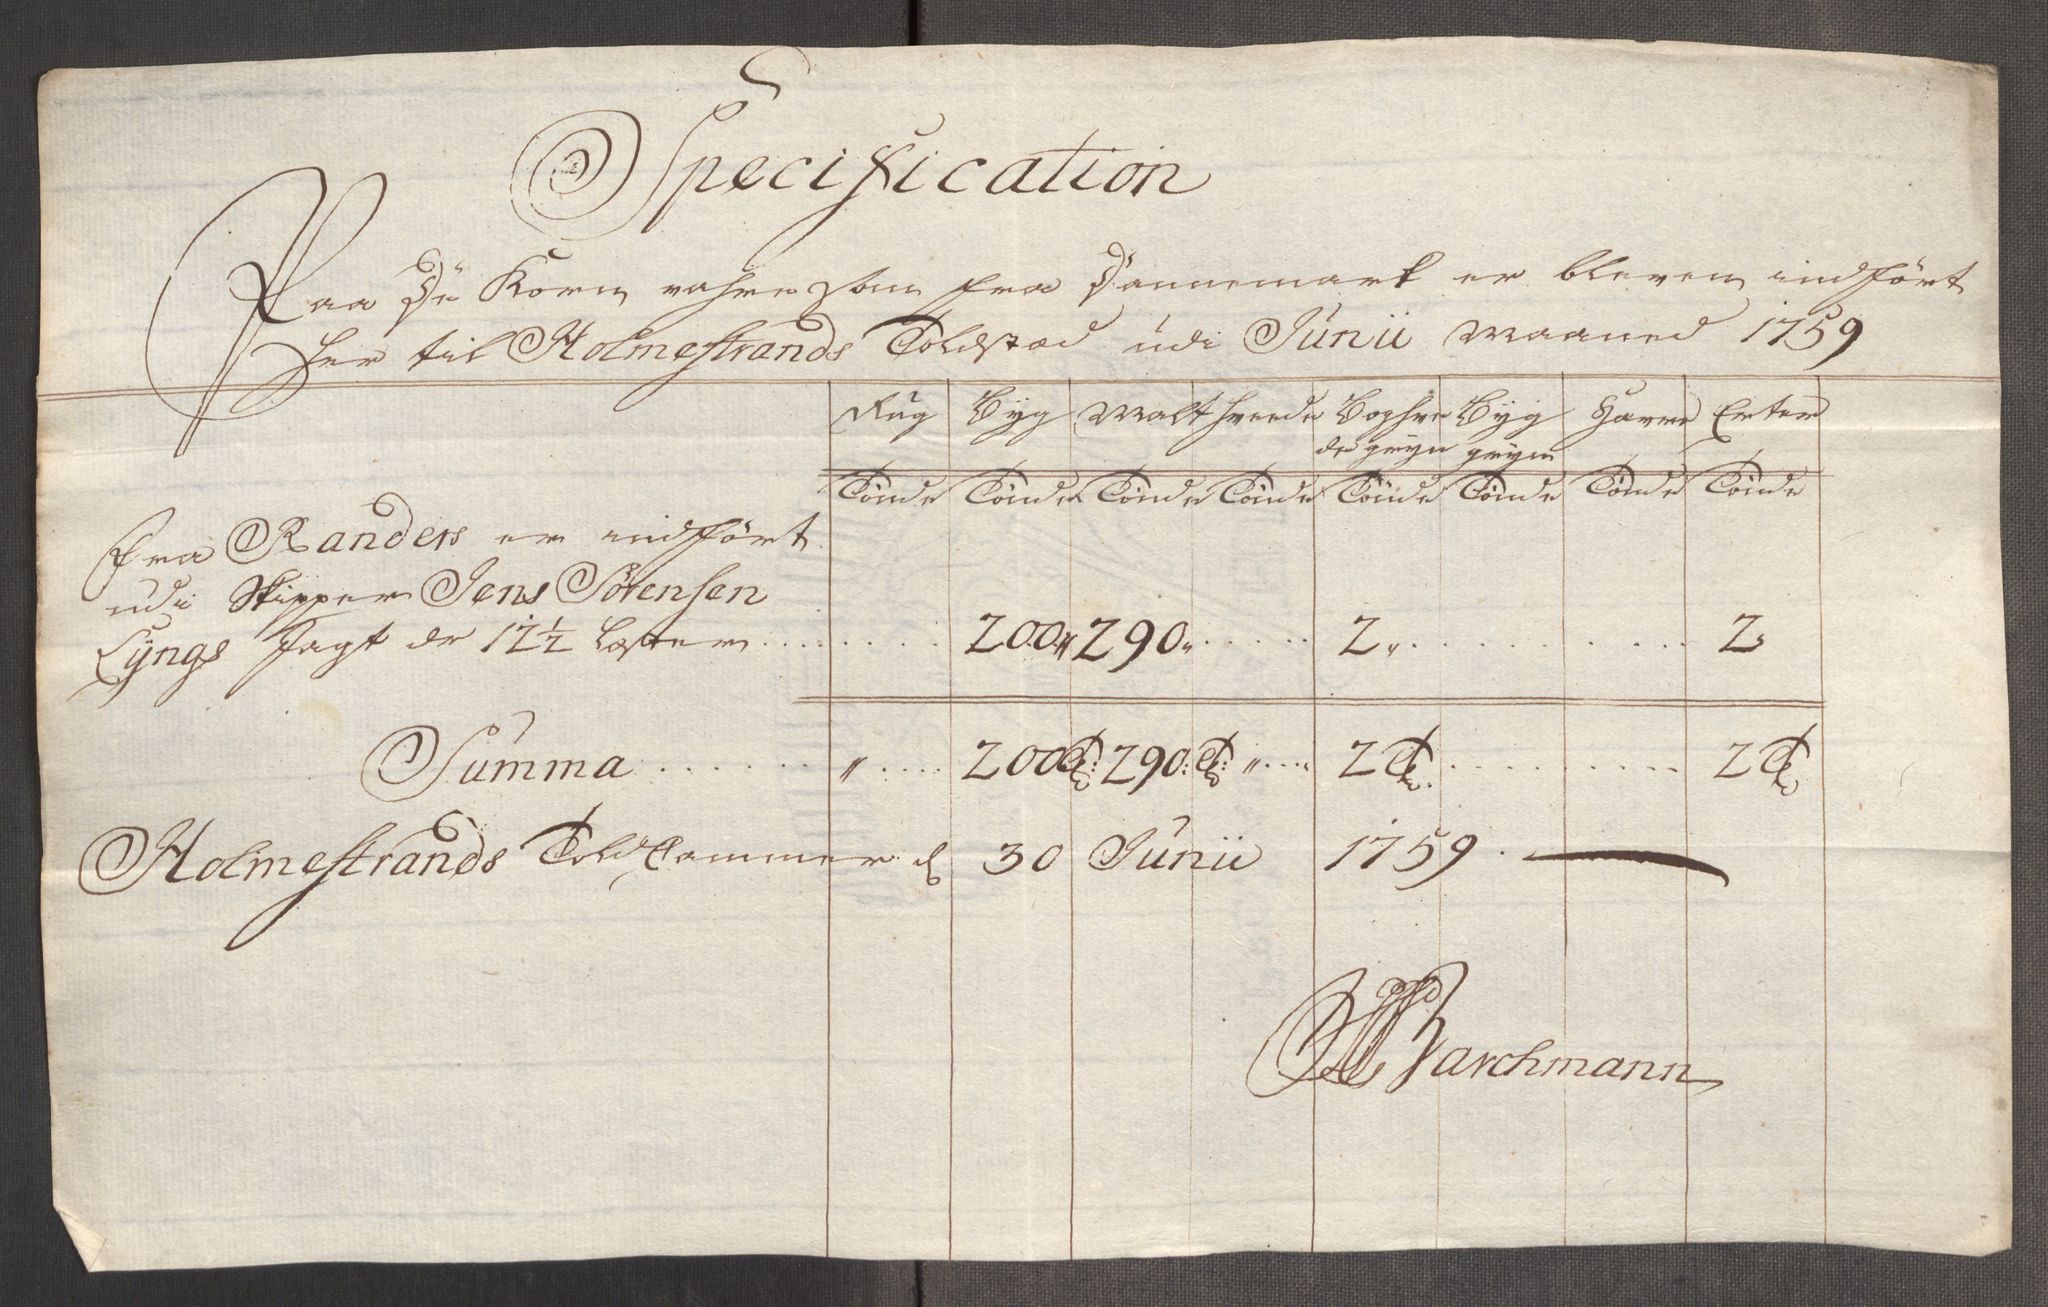 Specification
Paa De Korn vahre som fra Dannemark er bleven indført
her til Holmestrands Toldsted udi Junii Maaned 1759
Rug Byg Malt Hvede Boghve Byg Havre Erter
de gryn gryn
Tönde Tönde Tönde Tönde Tönde Tönde Tönde Tönde
Fra Randers er indført
udi Skipper Jens Sørensen
Lyngs Jagt dr 12½ Læster 200 290 2 2
Summa 200 Tr: 290: Tr: 2 Tr. 2 Tr
Holmestrands Told Cammer d 30 Junii 1759.
Barchmann